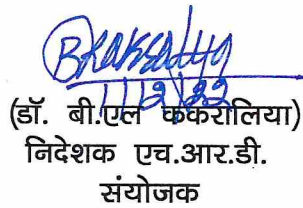 11/2/22
(डॉ. बी.एल ककरालिया)
निदेशक एच.आर.डी.
संयोजक